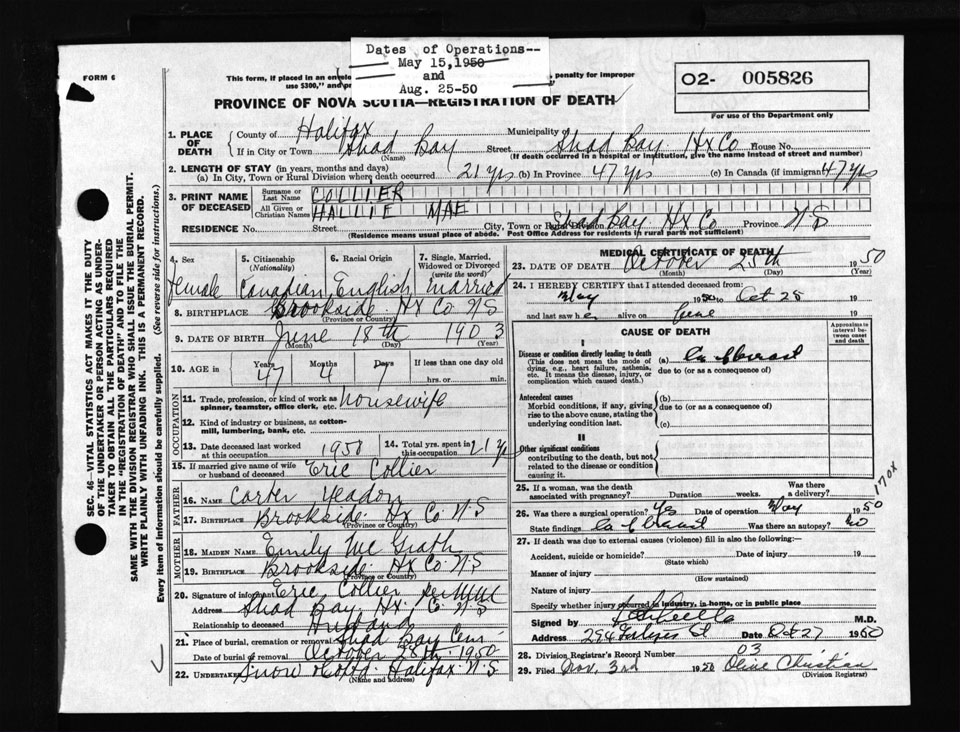 Dates of Operations--
May 15,1950
and
Aug. 25-50
FORM 6
This form, if placed in an penalty for improper
use $300," and
02- 005826
PROVINCE OF NOVA SCOTIA—REGISTRATION OF DEATH
For use of the Department only
1. PLACE OF DEATH
County of Halifax Municipality
If in City or Town Shad Bay Street Shad Bay Hx Co House No.
(Name) (If death occurred in a hospital or institution, give the name instead of street and number)
2. LENGTH OF STAY (in years, months and days)
(a) In City, Town or Rural Division where death occurred 21 yrs (b) In Province 47 yrs (c) In Canada (if immigrant) 47 yrs
3. PRINT NAME OF DECEASED
Surname or Last Name COLLIER
All Given or Christian Names HALLIE MAE
RESIDENCE No. Street City, Town or Rural Division Shad Bay Hx Co Province N S
(Residence means usual place of abode. Post Office Address for residents in rural parts not sufficient)
4. Sex 5. Citizenship (Nationality) 6. Racial Origin 7. Single, Married, Widowed or Divorced (write the word)
Female Canadian English Married
8. BIRTHPLACE Brookside Hx Co N S
(Province or Country)
9. DATE OF BIRTH June 18th 1903
(Month) (Day) (Year)
10. AGE in Years Months Days If less than one day old
47 4 7 hrs. or min.
OCCUPATION
11. Trade, profession, or kind of work as spinner, teamster, office clerk, etc. Housewife
12. Kind of industry or business, as cotton-mill, lumbering, bank, etc.
13. Date deceased last worked at this occupation 1950 14. Total yrs. spent in this occupation 21 yrs
15. If married give name of wife or husband of deceased Eric Collier
FATHER
16. NAME Carter Yeadon
17. BIRTHPLACE Brookside Hx Co N.S
(Province or Country)
MOTHER
18. MAIDEN NAME Emily Mc Grath
19. BIRTHPLACE Brookside Hx Co N S
(Province or Country)
20. Signature of informant Eric Collier per
Address Shad Bay Hx Co N S
Relationship to deceased Husband
21. Place of burial, cremation or removal Shad Bay Cem
Date of burial or removal October 28th 1950
22. UNDERTAKER Snow & Co Halifax N.S
(Name and address)
MEDICAL CERTIFICATE OF DEATH
23. DATE OF DEATH October 25th 1950
(Month) (Day) (Year)
24. I HEREBY CERTIFY that I attended deceased from:
May 1950 to Oct 25 19
and last saw her alive on 19
CAUSE OF DEATH
Approximate interval between onset and death
I
Disease or condition directly leading to death (a) Ca of breast
(This does not mean the mode of dying, e.g., heart failure, asthenia, etc. It means the disease, injury, or complication which caused death.)
due to (or as a consequence of)
Antecedent causes
Morbid conditions, if any, giving rise to the above cause, stating the underlying condition last.
(b)
due to (or as a consequence of)
(c)
II
Other significant conditions
contributing to the death, but not related to the disease or condition causing it.
25. If a woman, was the death associated with pregnancy? Duration weeks. Was there a delivery?
170X
26. Was there a surgical operation? Yes Date of operation May 1950
State findings Ca of breast Was there an autopsy? No
27. If death was due to external causes (violence) fill in also the following:—
Accident, suicide or homicide? Date of injury 19
(State which)
Manner of injury
(How sustained)
Nature of injury
Specify whether injury occurred in industry, in home, or in public place
Signed by M.D.
Address Date Oct 27 1950
28. Division Registrar's Record Number 03
29. Filed Nov. 3rd 1950 Olive Christian
(Division Registrar)
SEC. 46—VITAL STATISTICS ACT MAKES IT THE DUTY
OF THE UNDERTAKER OR PERSON ACTING AS UNDER-
TAKER TO OBTAIN ALL THE PARTICULARS REQUIRED
IN THE "REGISTRATION OF DEATH" AND TO FILE THE
SAME WITH THE DIVISION REGISTRAR WHO SHALL ISSUE THE BURIAL PERMIT.
WRITE PLAINLY WITH UNFADING INK. THIS IS A PERMANENT RECORD.
Every item of information should be carefully supplied. (See reverse side for instructions.)